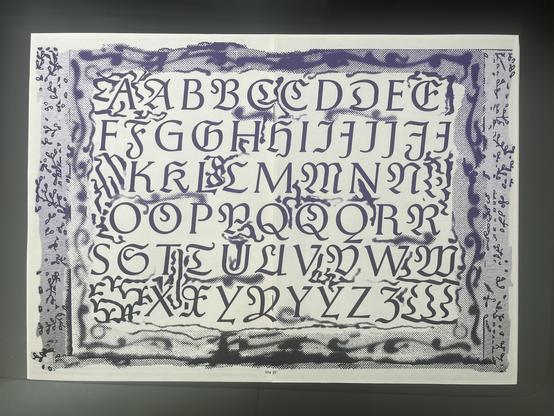 A A B B C C D D E E
F F G G H H I I J J J J
K K L L M M N N
O O P P Q Q Q R R
S S T T U U V V W W
X X Y Y Y Y Z Z